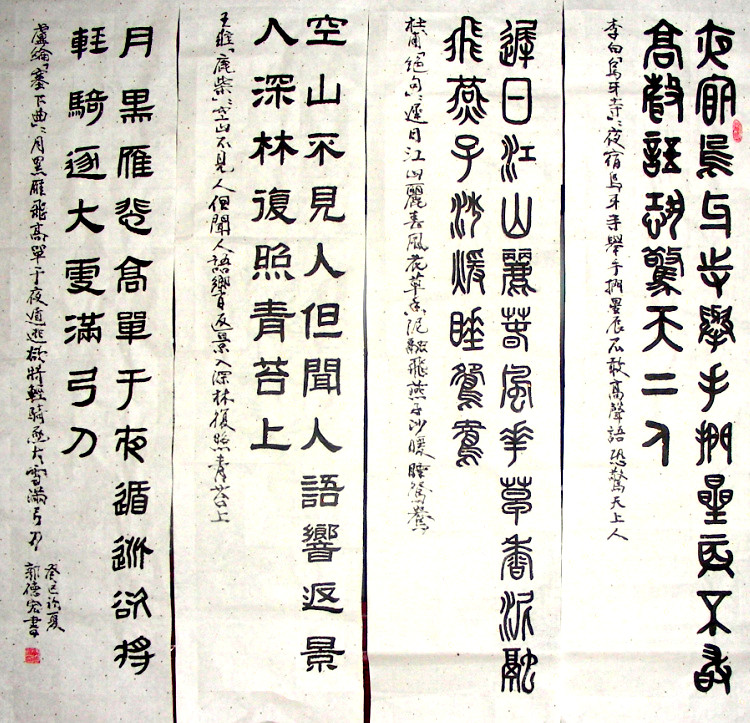 夜宿烏牙寺舉手捫星辰不敢
高聲語恐驚天上人
李白烏牙寺：夜宿烏牙寺舉手捫星辰不敢高聲語恐驚天上人
遲日江山麗春風花草香泥融
飛燕子沙暖睡鴛鴦
杜甫「絕句」：遲日江山麗春風花草香泥融飛燕子沙暖睡鴛鴦
空山不見人但聞人語響返景
入深林復照青苔上
王維「鹿柴」：空山不見人但聞人語響返景入深林復照青苔上
月黑雁飛高單于夜遁逃欲將
輕騎逐大雪滿弓刀
盧綸「塞下曲」：月黑雁飛高單于夜遁逃欲將輕騎逐大雪滿弓刀
癸巳初夏
郭德宏書